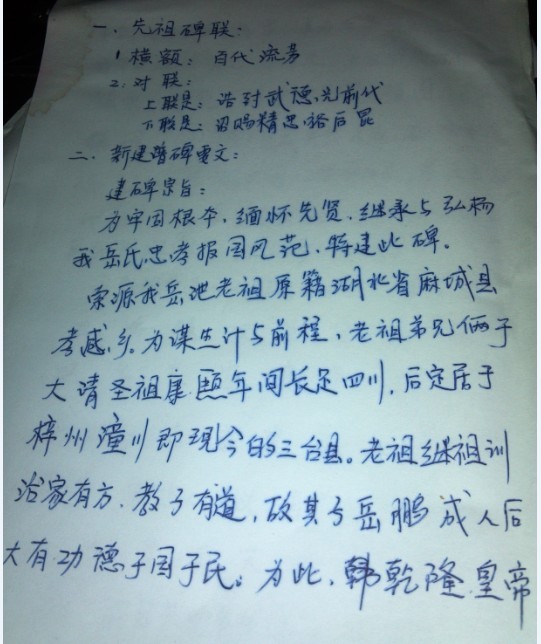 一、先祖碑联:
1横额：百代流芳
2.对联:
上联是：诰封武德光前代
下联是：诏赐精忠裕后昆
二、新建谱碑电文:
建碑宗旨:
为牢固根本，缅怀先贤，继承与弘杨
我岳氏忠孝报国风范，特建此碑。
宗源我岳池老祖原籍湖北省麻城县
孝感乡。为谋生计与前程，老祖弟兄俩于
大清圣祖康熙年间长足四川，后定居于
梓州潼川即现今的三台县。老祖继祖训
治家有方，教子有道，故其子岳鹏成人后
大有功德于国于民。为此，韩乾隆皇帝